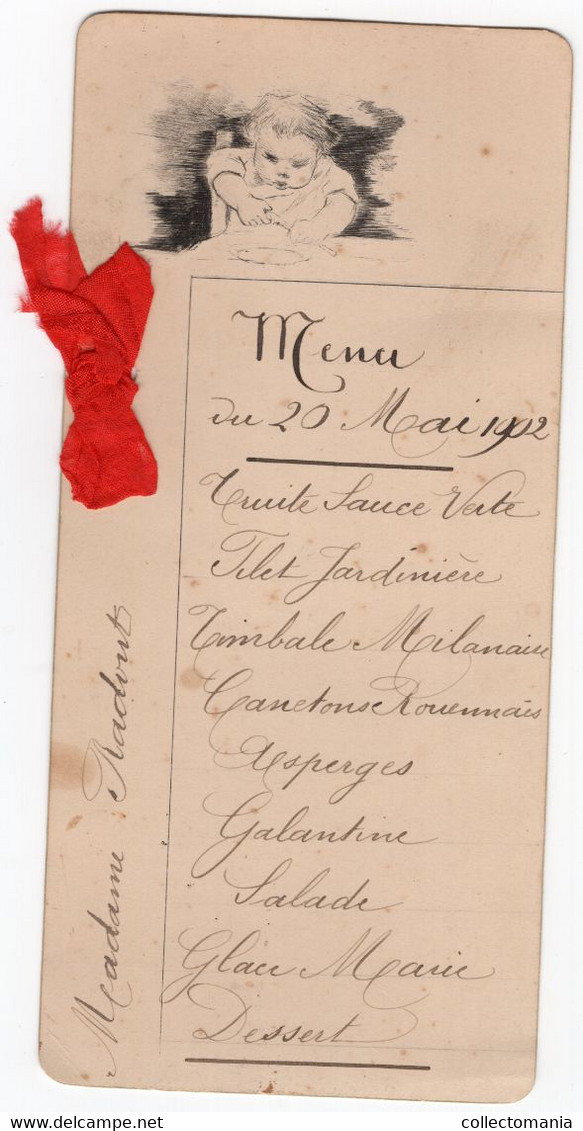 Menu
du 20 Mai 1902
Truite Sauce Verte
Filet Jardinière
Timbale Milanaise
Canetons Rouennais
Asperges
Galantine
Salade
Glace Marie
Dessert
Madame
delcampe.net
collectomania